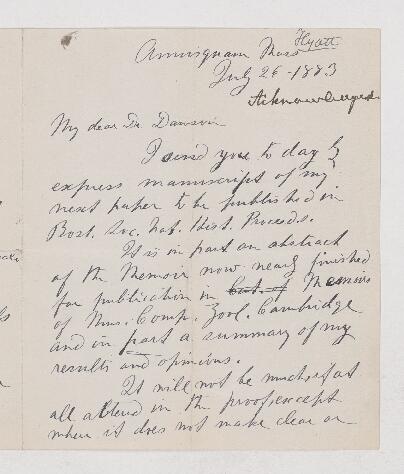 Hyatt
Annisquam Mass
July 26 - 1883
Acknowledged.
My dear Dr Dawson
I send you to day by
express manuscript of my
next paper to be published in
Bost. Soc. Nat. Hist. Proceeds.
It is in part an abstract
of the Memoir now nearly finished
for publication in Memoirs
of Mus. Comp. Zool. Cambridge
and in part a summary of my
results and opinions.
It will not be much, if at
all altered in the proof, except
where it does not make clear or